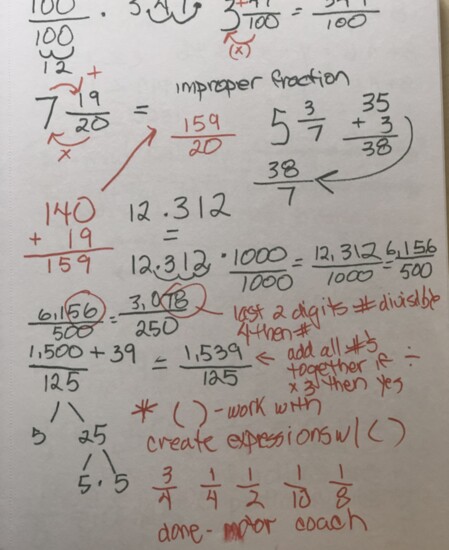 100/100 · 3.41 · 3 /100 = /100
+
(x)
12 +
improper fraction
7 19/20 = 159/20 5 3/7 35
x + 3
38
38/7
140 12.312
+ 19 =
159 12.312 · 1000/1000 = 12,312/1000 = 6,156/500
6,156/500 = 3,078/250 last 2 digits # divisible
4 then #
1,500 + 39/125 = 1,539/125 ← add all #'s ÷
together if
x 3 then yes
5 25 * ( ) - work with
create expressions w/ ( )
5 · 5 3/4 1/4 1/2 1/10 1/8
done - coach